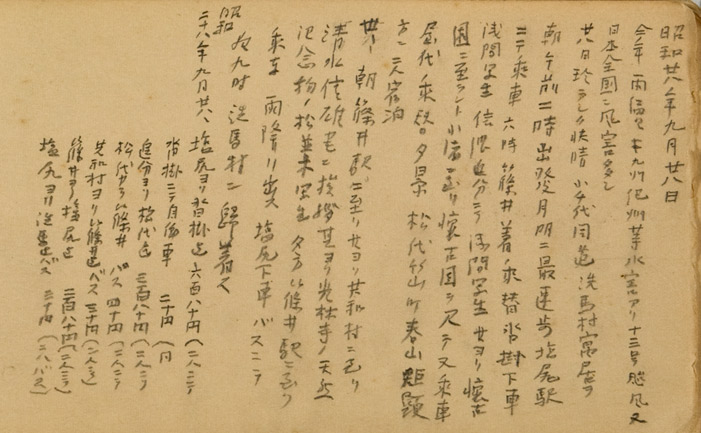 昭和廿八年九月廿八日
今年 雨屢々 本九州 紀州等水害アリ 十三号颱風又
日本全国ニ風害多し
廿八日 珍ラシク快晴 千代同道 洗馬村寓居ヲ
朝午前二時出発 月明ニ最 徒歩 塩尻駅
ニテ乗車 六時篠井着 乗替 沓掛下車
浅間写生 信濃追分ニテ浅間写生 廿ヨリ懐古
園ニ至ラント小諸ニ至り 懐古園ヲ尺テ又乗車
屋代乗替 夕景 松代 竹山町 春山
方ニ二人宿泊
廿九 朝篠井駅ニ至り 廿ヨリ共和村ニ至り
清水信雄宅ニ 其ヨリ光林寺ノ天然
記念物ノ松並木写生 夕方篠井駅ニ至り
乗車 雨降り出ス 塩尻下車 バスニテ
夜九時 洗馬村ニ帰着ス
昭和
二十八年九月廿八 塩尻ヨリ沓掛迄 六百八十円(二人ニテ
沓掛ニテ自働車 二十円(〃
追分ヨリ松代迄 三百八十円(二人ニテ
松代カラ篠井 バス 四十円(二人ニテ
共和村ヨリ篠井迄 バス 三十円(二人ニテ
篠井ヨリ塩尻迄 二百八十円(二人ニテ
塩尻ヨリ洗馬迄バス 三十円(二人バス)